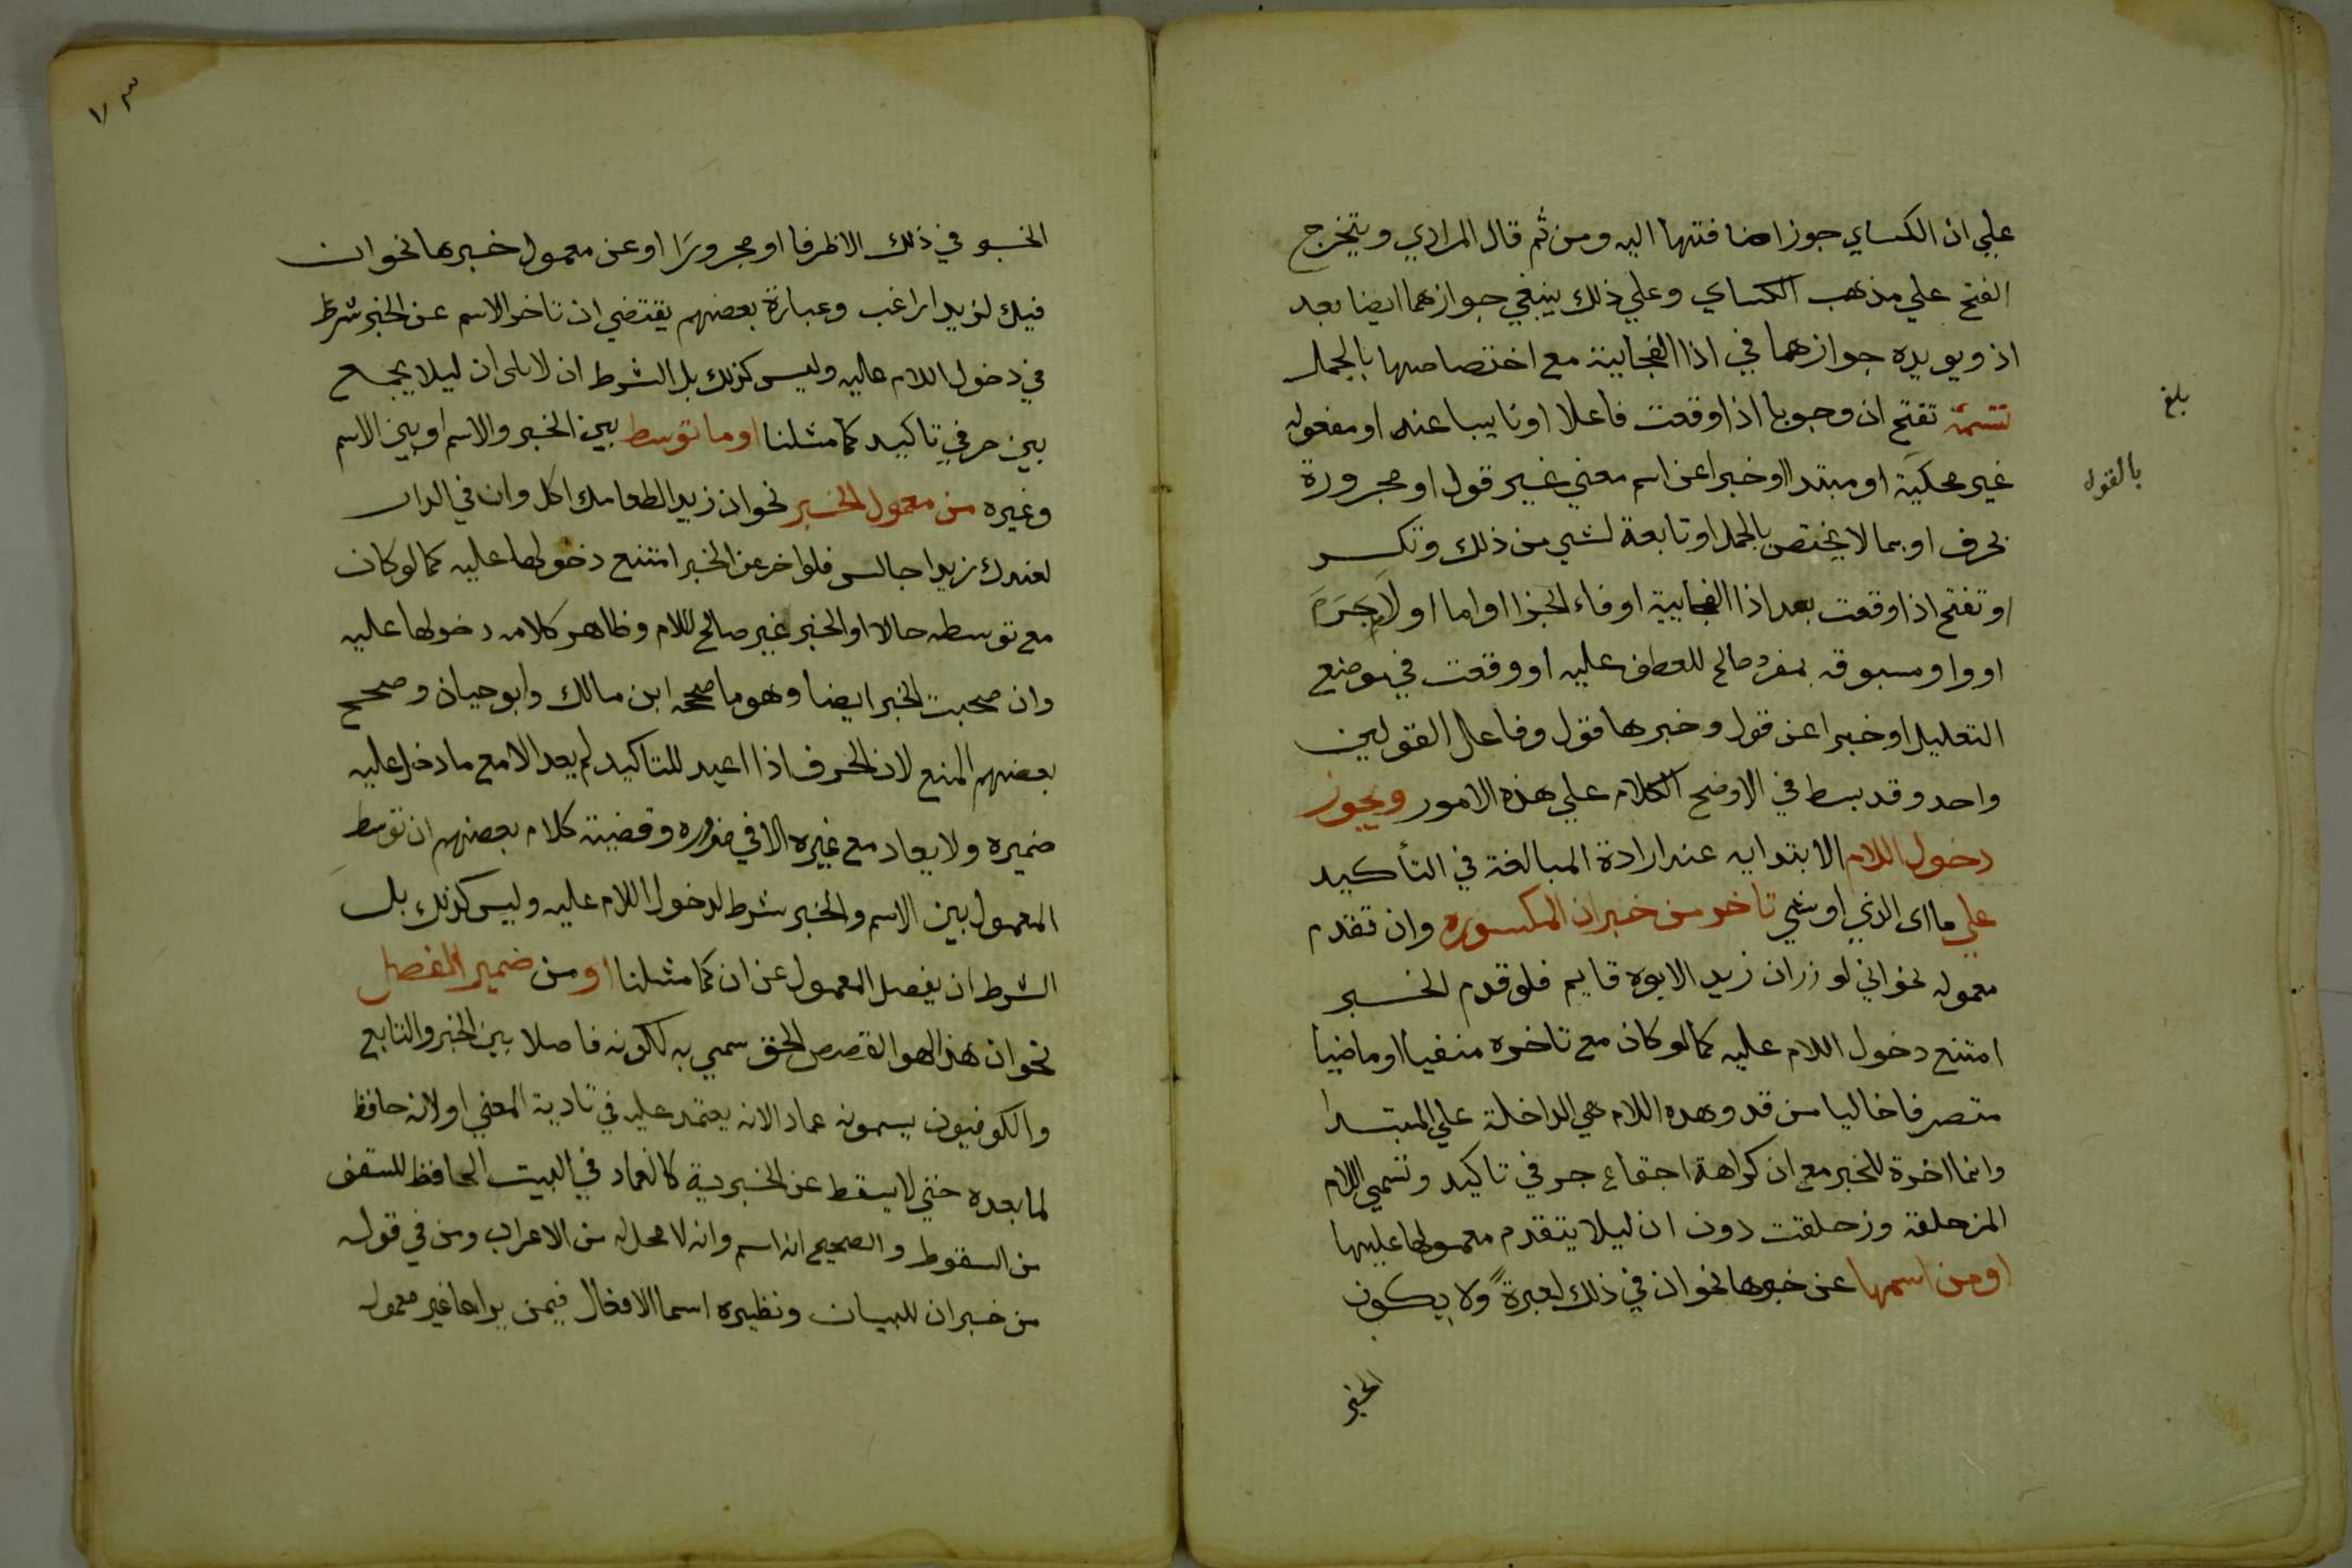 علي ان الكساي جوز اضافتها اليه ومن ثم قال المرادي ويتخرج
الفتح علي مذهب الكساي وعلي ذلك ينبغي جوازهما ايضا بعد
اذ ويويده جوازهما في اذا الفجايية مع اختصاصها بالجمل
تتمة تفتح ان وجوبا اذا وقعت فاعلا او نايبا عنه او مفعوله
غير محكية او مبتدا او خبرا عن اسم معني غير قول او مجرورة
بحرف او بما لا يختص بالجمل او تابعة لشي من ذلك وتكسر
او تفتح اذا وقعت بعد اذا الفجايية او فاء الجزا او اما او لا جرم
او واو مسبوقه بمفرد صالح للعطف عليه او وقعت في موضع
التعليل او خبرا عن قول وخبرها قول وفاعل القولين
واحد وقد بسط في الاوضح الكلام علي هذه الامور ويجوز
دخول اللام الابتدايه عند ارادة المبالغة في التأكيد
علي ما اى الذي او شي تاخر من خبر ان المكسوره وان تقدم
معموله نحو اني لوزر ان زيدا لابوه قايم فلو قدم الخبر
امتنع دخول اللام عليه كما لو كان مع تاخره منفيا او ماضيا
متصرفا خاليا من قد وهده اللام هي الداخلة علي المبتدا
وانما اخرة للخبر مع ان كراهة اجتماع حرفي تاكيد وتسمي اللام
المزحلقة وزحلقت دون ان ليلا يتقدم معمولها عليها
او من اسمها عن خبرها نحو ان في ذلك لعبرةً ولا يكون
الخبر
بلغ
بالقول
الخبر في ذلك الا ظرفا او مجرورًا او عن معمول خبرها نحو ان
فيك لزيدا راغب وعبارة بعضهم يقتضي ان تاخر الاسم عن الخبر شرط
في دخول اللام عاليه وليس كذلك بل الشرط ان لا يلى ان ليلا يجمع
بين حرفي تاكيد كما مثلنا او ما توسط بين الخبر والاسم او بين الاسم
وغيره من معمول الخبر نحو ان زيدا لطعامك اكل وان في الدار
لعندك زيدا جالس فلو اخر عن الخبر امتنع دخولها عليه كما لو كان
مع توسطه حالا او الخبر غير صالح للام وظاهر كلامه دخولها عليه
وان صحبت الخبر ايضا وهو ما صححه ابن مالك وابو حيان وصحح
بعضهم المنع لان الحرف اذا اعيد للتاكيد لم يعد الا مع ما دخل عليه
ضميره ولا يعاد مع غيره الا في ضروره وقضية كلام بعضهم ان توسط
المعمول بين الاسم والخبر شرط لدخول اللام عليه وليس كذلك بل
الشرط ان يفصل المعمول عن ان كما مثلنا او من ضمير الفصل
نحو ان هذا لهو القصص الحق سمي به لكونه فاصلا بين الخبر والتابع
والكوفيون يسمونه عمادا لانه يعتمد عليه في تادية المعني او لانه حافظ
لما بعده حتي لا يسقط عن الخبرية كالعماد في البيت الحافظ للسقف
من السقوط والصحيح انه اسم وانه لا محل له من الاعراب ومن في قوله
من خبر ان للبيان ونظيره اسما الافعال فيمن يراها غير معموله